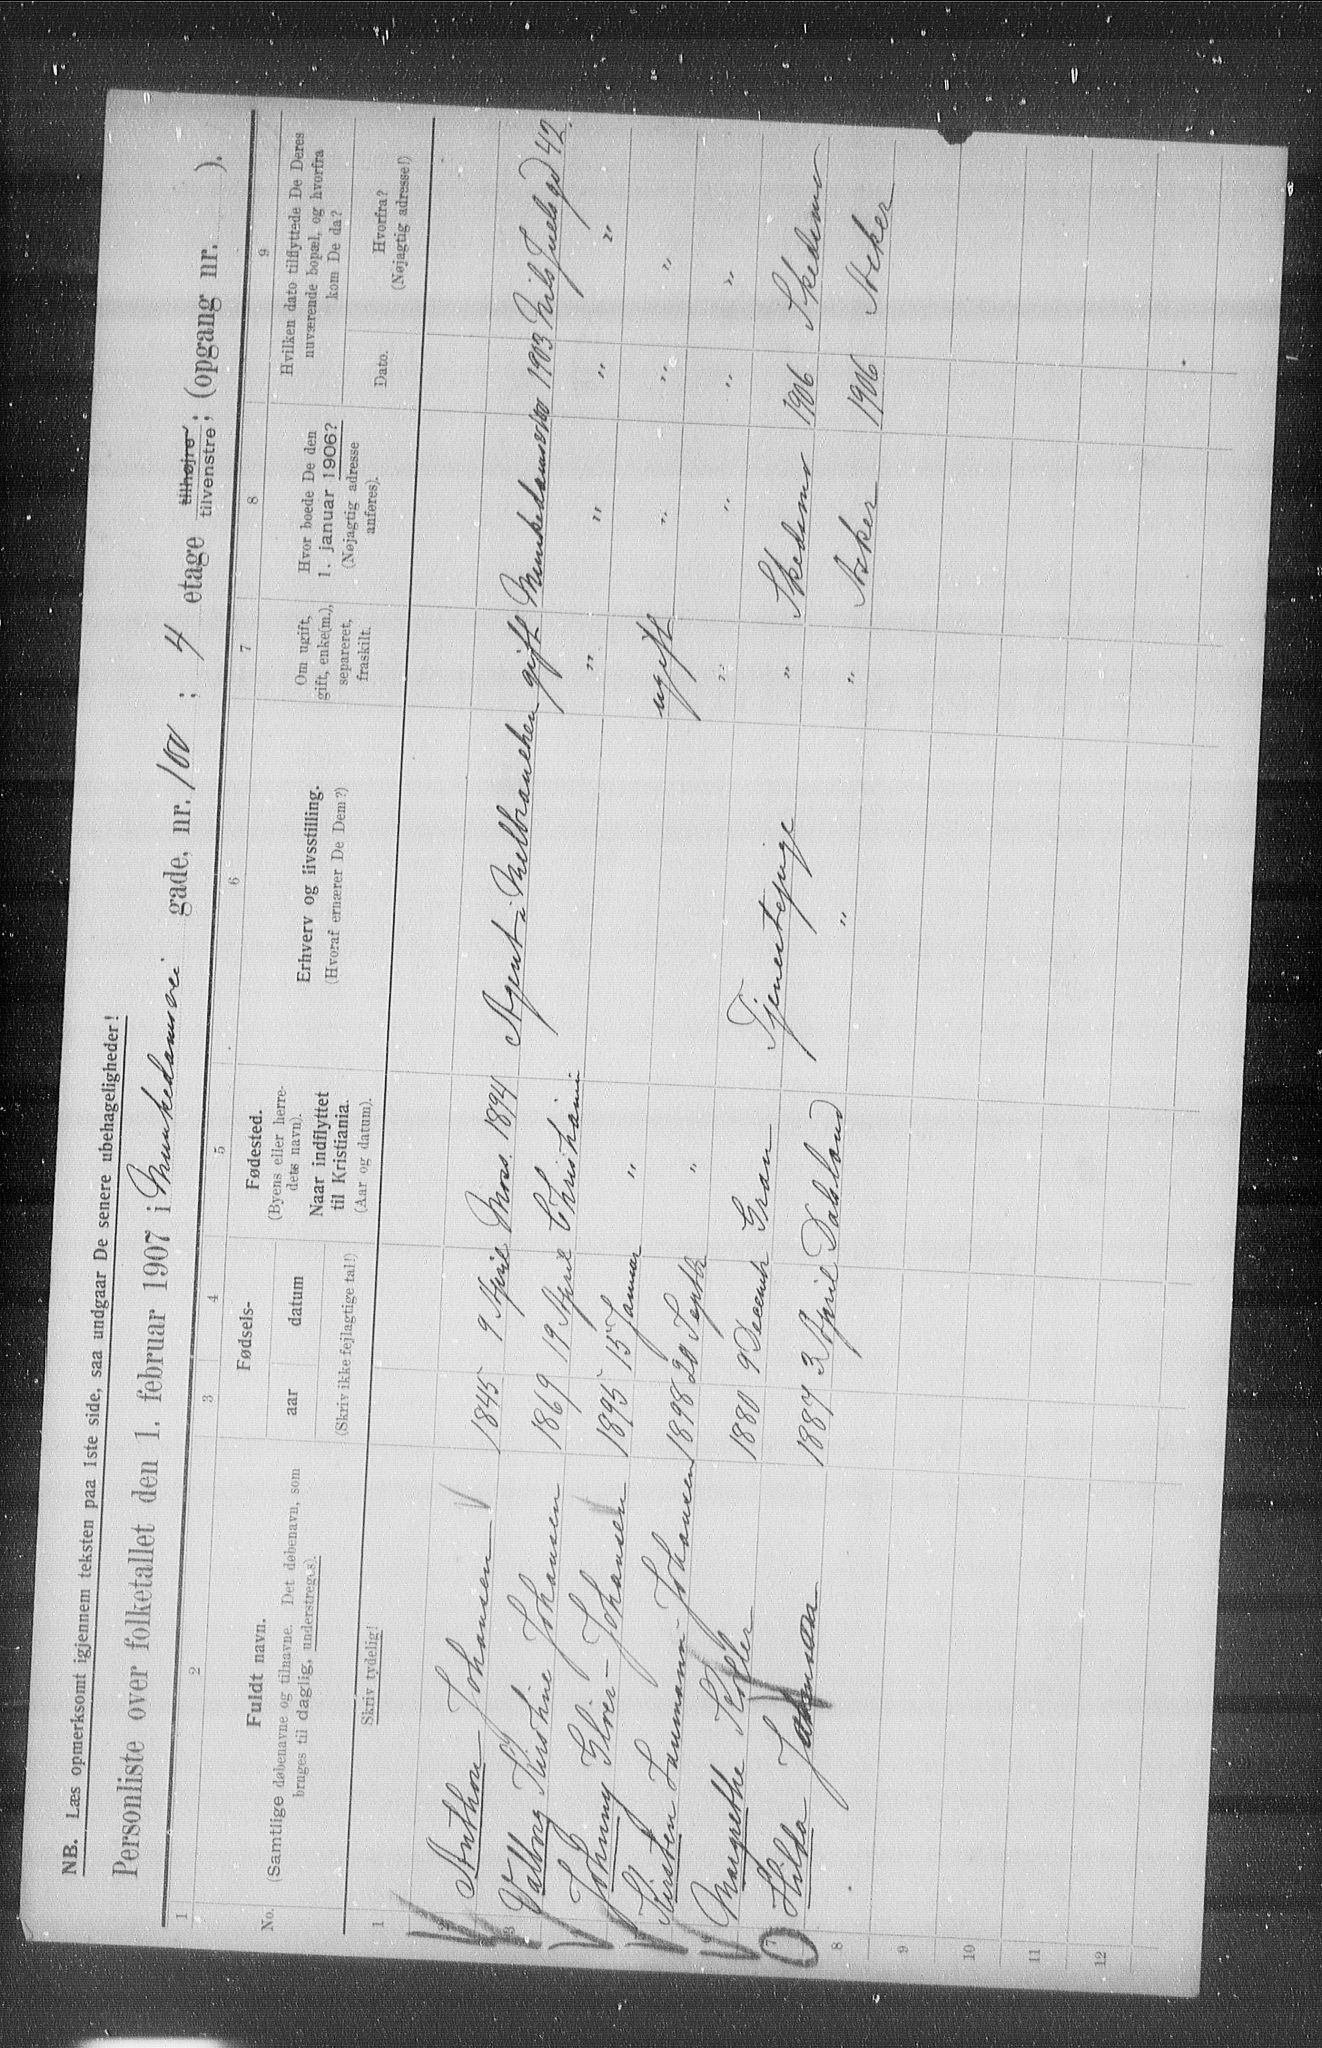 NB. Læs opmerksomt igjennem teksten paa 1ste side, saa undgaar De senere ubehageligheder!
Personliste over folketallet den 1. februar 1907 i Munkedamsvei gade, nr. 100 ; 4 etage tilhøjre tilvenstre; (opgang nr. ).
1 2 3 4 5 6 7 8 9
No.
Fuldt navn.
(Samtlige døbenavne og tilnavne. Det døbenavn, som
bruges til daglig, understreges).
Skriv tydelig!
Fødsels-
aar datum
(Skriv ikke fejlagtige tal!)
Fødested.
(Byens eller herre-
dets navn).
Naar indflyttet
til Kristiania.
(Aar og datum).
Erhverv og livsstilling.
(Hvoraf ernærer De Dem?)
Om ugift,
gift, enke(m.),
separeret,
fraskilt.
Hvor boede De den
1. januar 1906?
(Nøjagtig adresse
anføres).
Hvilken dato tilflyttede De Deres
nuværende bopæl, og hvorfra
kom De da?
Dato.
Hvorfra?
(Nøjagtig adresse!)
1
2 Anthon Johansen 1845 9 April Moss. 1894 Agent i Melbranchen gift Munkedamsv 100 1903 Nils Juels gd 42.
3 Valborg Kirstine Johansen 1869 19 April Christiania " " " "
Johnny - Johansen 1895 15 Januar " ugift " " "
Kirsten - Johansen 1898 20 Septb " " " " "
Margrethe 1880 9 Decemb Gran Tjenestepige " Skedsmo 1906 Skedsmo
7 Hilda 1887 3 April Dalsland " " Asker 1906 Asker
8
9
10
11
12